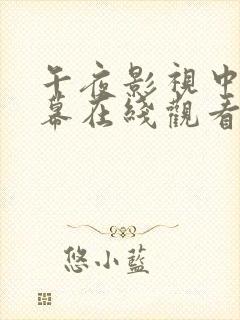 午夜影視中
幕在綫觀看
悠小藍